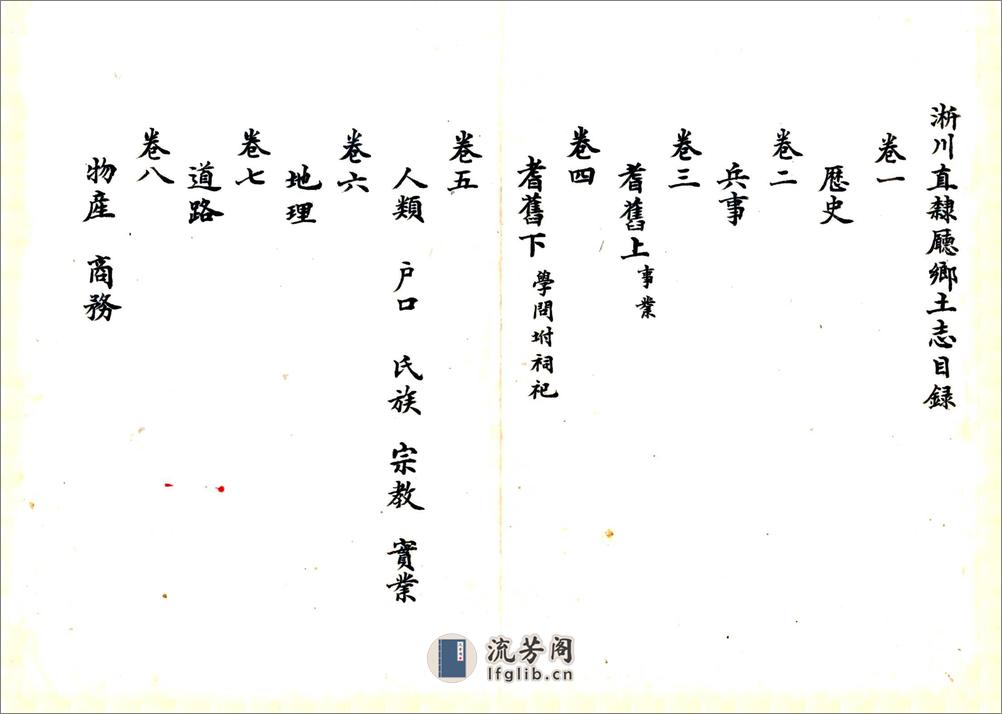 淅川直隸廳鄉土志目録
卷一
歷史
卷二
兵事
卷三
耆舊上 事業
卷四
耆舊下 學問坿祠祀
卷五
人類 户口 氏族 宗教 實業
卷六
地理
卷七
道路
卷八
物產 商務
流芳阁
lfglib.cn